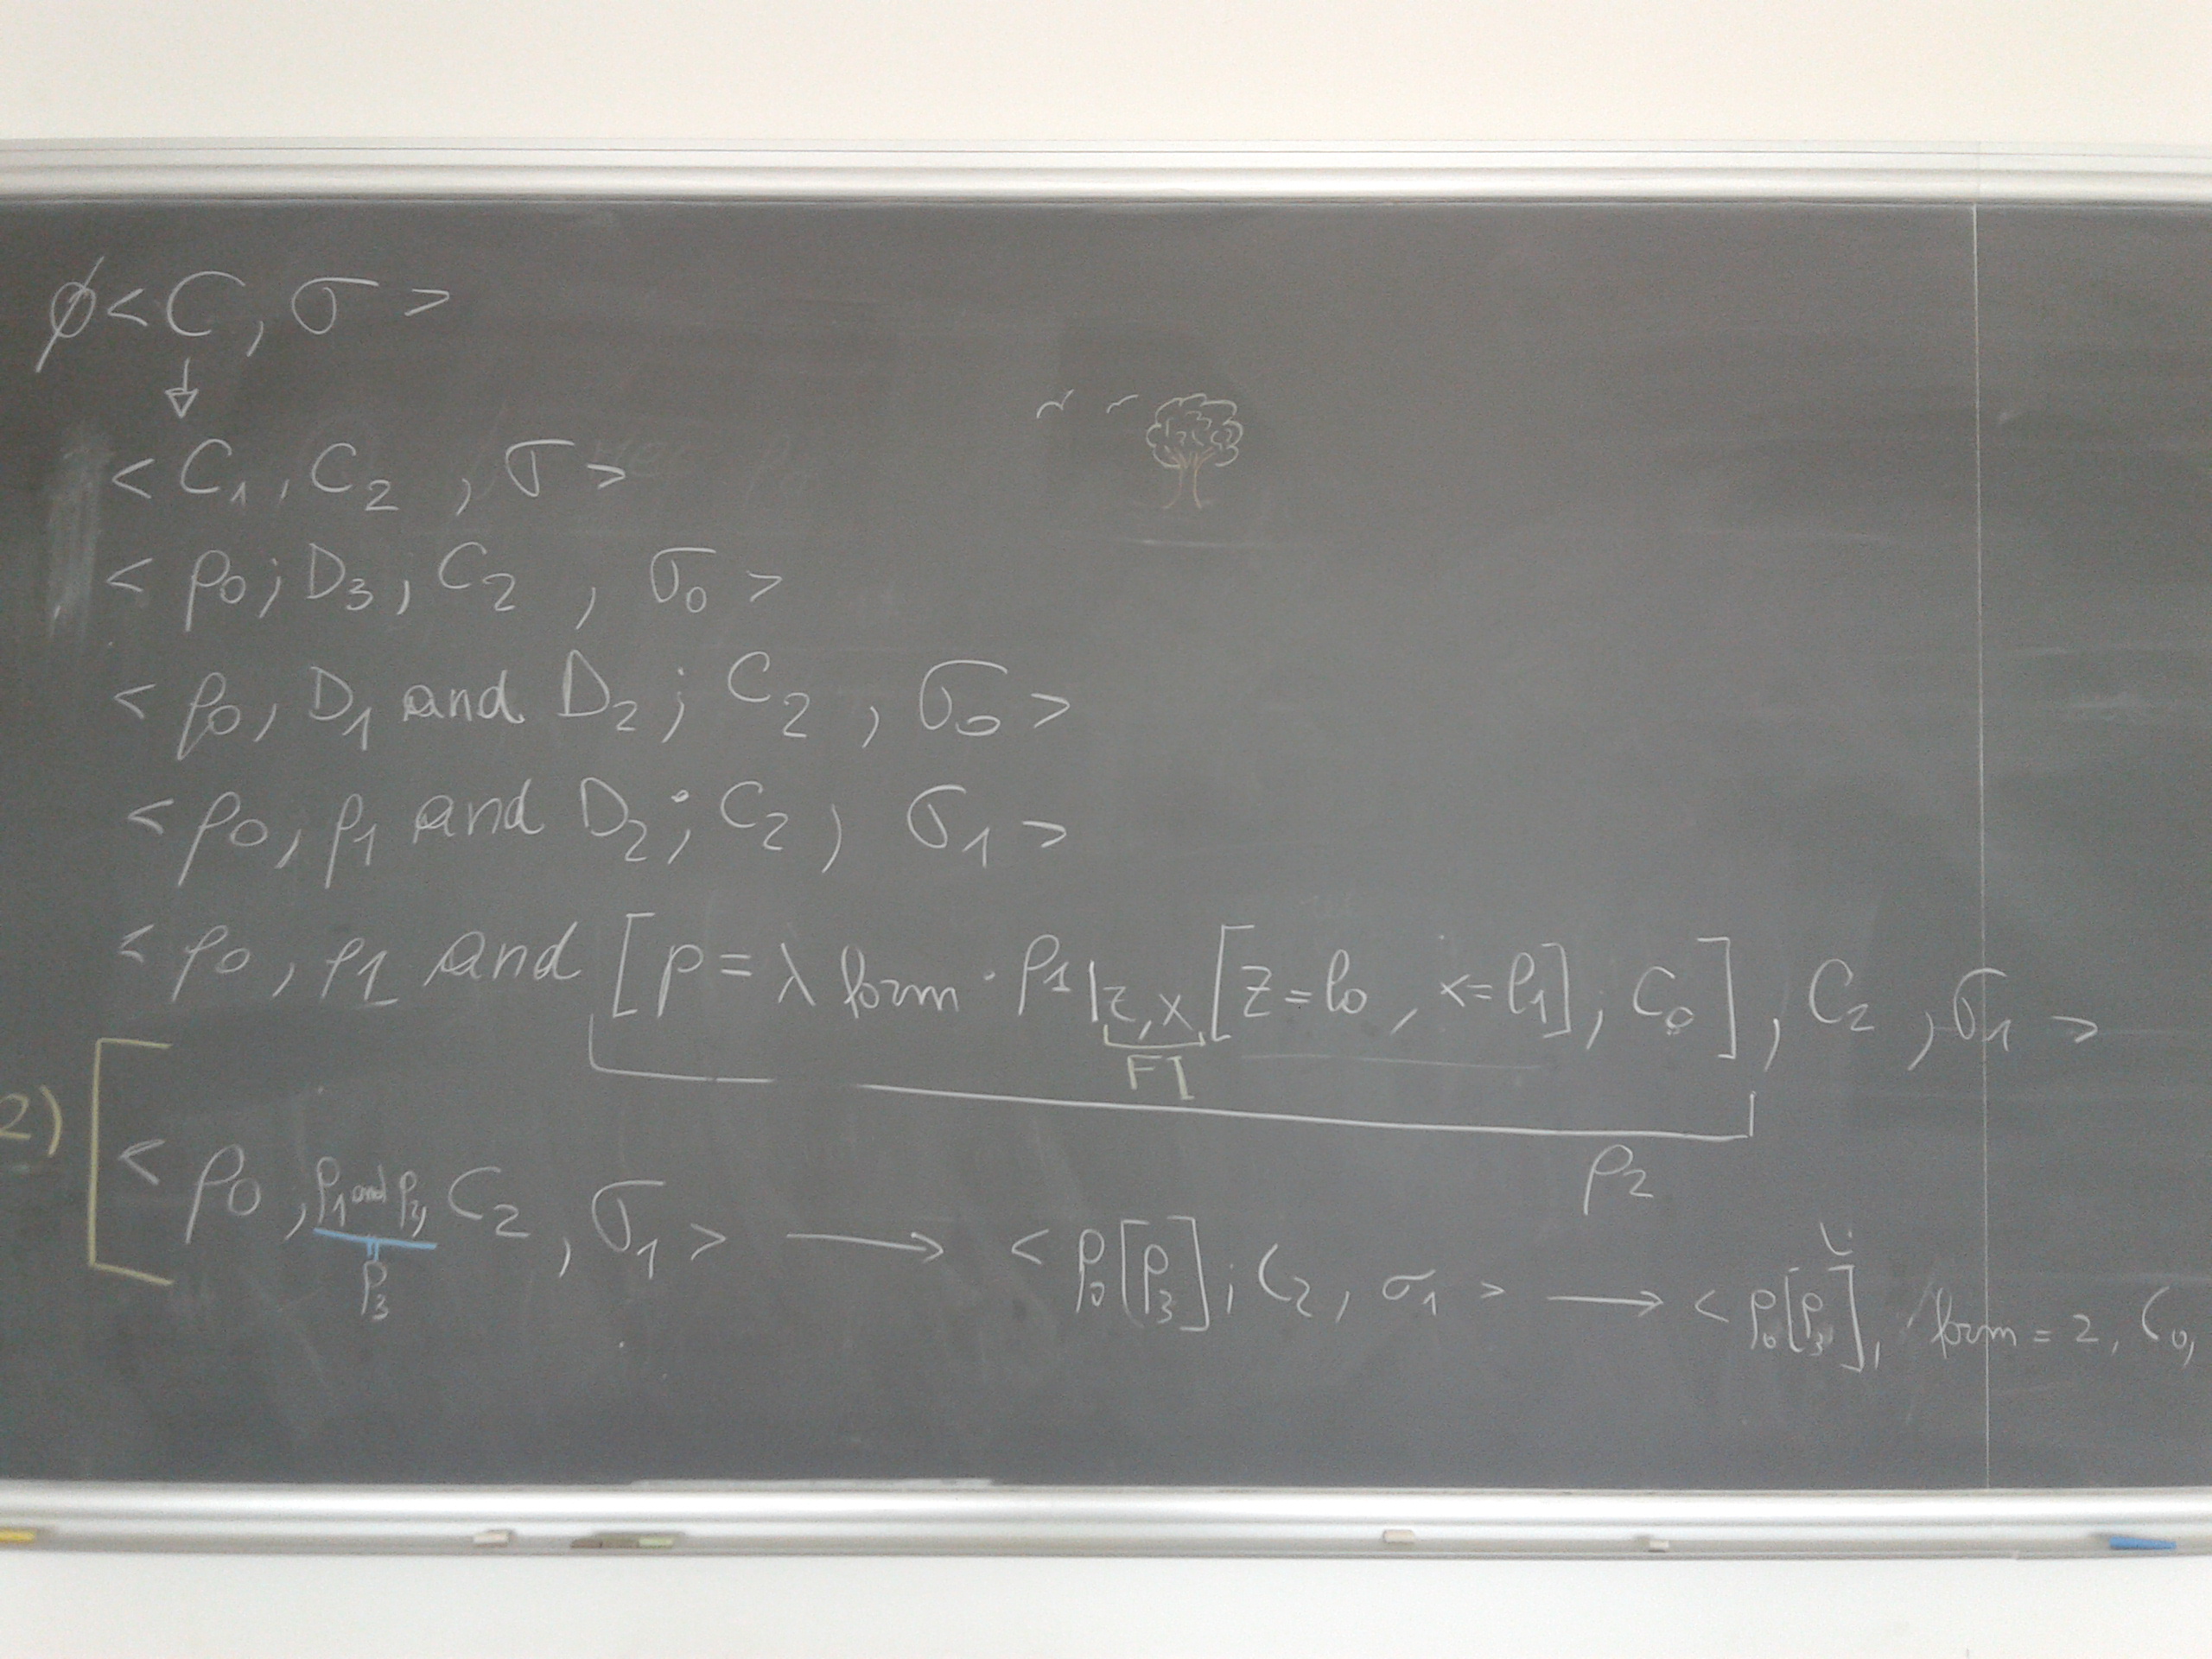 ∅<C, σ>
<C₁, C₂, σ>
<ρ₀; D₃, C₂, σ₀>
<ρ₀, D₁ and D₂; C₂, σ₀>
<ρ₀, ρ₁ and D₂; C₂, σ₁>
<ρ₀, ρ₁ and [p = λ form · ρ₁|z,x [z = l₀, x = l₁]; C₀], C₂, σ₁>
FI
ρ₂
2) <ρ₀, ρ₁ and ρ₂, C₂, σ₁> → <ρ₀[ρ₃]; C₂, σ₁> → <ρ₀[ρ₃], form = 2, C₀,
ρ₃